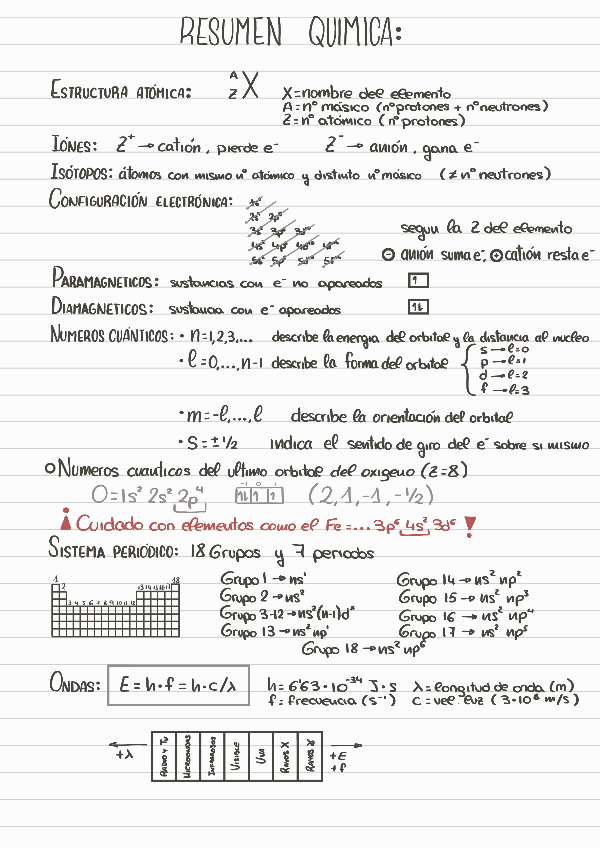 RESUMEN QUIMICA:
ESTRUCTURA ATÓMICA: A Z X X=nombre del elemento
A=nº másico (nºprotones + nºneutrones)
Z=nº atómico (nºprotones)
IÓNES: Z⁺ → catión, pierde e⁻ Z⁻ → anión, gana e⁻
ISÓTOPOS: átomos con mismo nº atómico y distinto nº másico (≠ nº neutrones)
CONFIGURACIÓN ELECTRÓNICA: 1s²
2s² 2p⁶
3s² 3p⁶ 3d¹⁰
4s² 4p⁶ 4d¹⁰ 4f¹⁴
5s² 5p⁶ 5d¹⁰ 5f¹⁴
segun la Z del elemento
⊖ anión suma e⁻, ⊕ catión resta e⁻
PARAMAGNETICOS: sustancias con e⁻ no apareados ↑
DIAMAGNETICOS: sustancia con e⁻ apareados ↑↓
NUMEROS CUÁNTICOS: • n=1,2,3,... describe la energia del orbital y la distancia al nucleo
• l=0,...,n-1 describe la forma del orbital { s → l=0
p → l=1
d → l=2
f → l=3
• m=-l,...,l describe la orientación del orbital
• S=±1/2 indica el sentido de giro del e⁻ sobre si mismo
O Numeros cuanticos del ultimo orbital del oxigeno (z=8)
O=1s² 2s² 2p⁴ -1 0 1 ↑↓ ↑ ↑ (2,1,-1,-1/2)
¡ Cuidado con elementos como el Fe=... 3p⁶ 4s² 3d⁶ !
SISTEMA PERIÓDICO: 18 Grupos y 7 periodos
1 18
2 13 14 15 16 17
3 4 5 6 7 8 9 10 11 12
Grupo 1 → ns¹ Grupo 14 → ns² np²
Grupo 2 → ns² Grupo 15 → ns² np³
Grupo 3-12 → ns²(n-1)dˣ Grupo 16 → ns² np⁴
Grupo 13 → ns² np¹ Grupo 17 → ns² np⁵
Grupo 18 → ns² np⁶
ONDAS: E=h·f=h·c/λ h=6'63·10⁻³⁴ J·s λ=longitud de onda (m)
f=frecuencia (s⁻¹) c=vel. luz (3·10⁸ m/s)
+λ RADIO Y TV MICROONDAS INFRARROJOS VISIBLE UVA RAYOS X RAYOS γ +E
+f